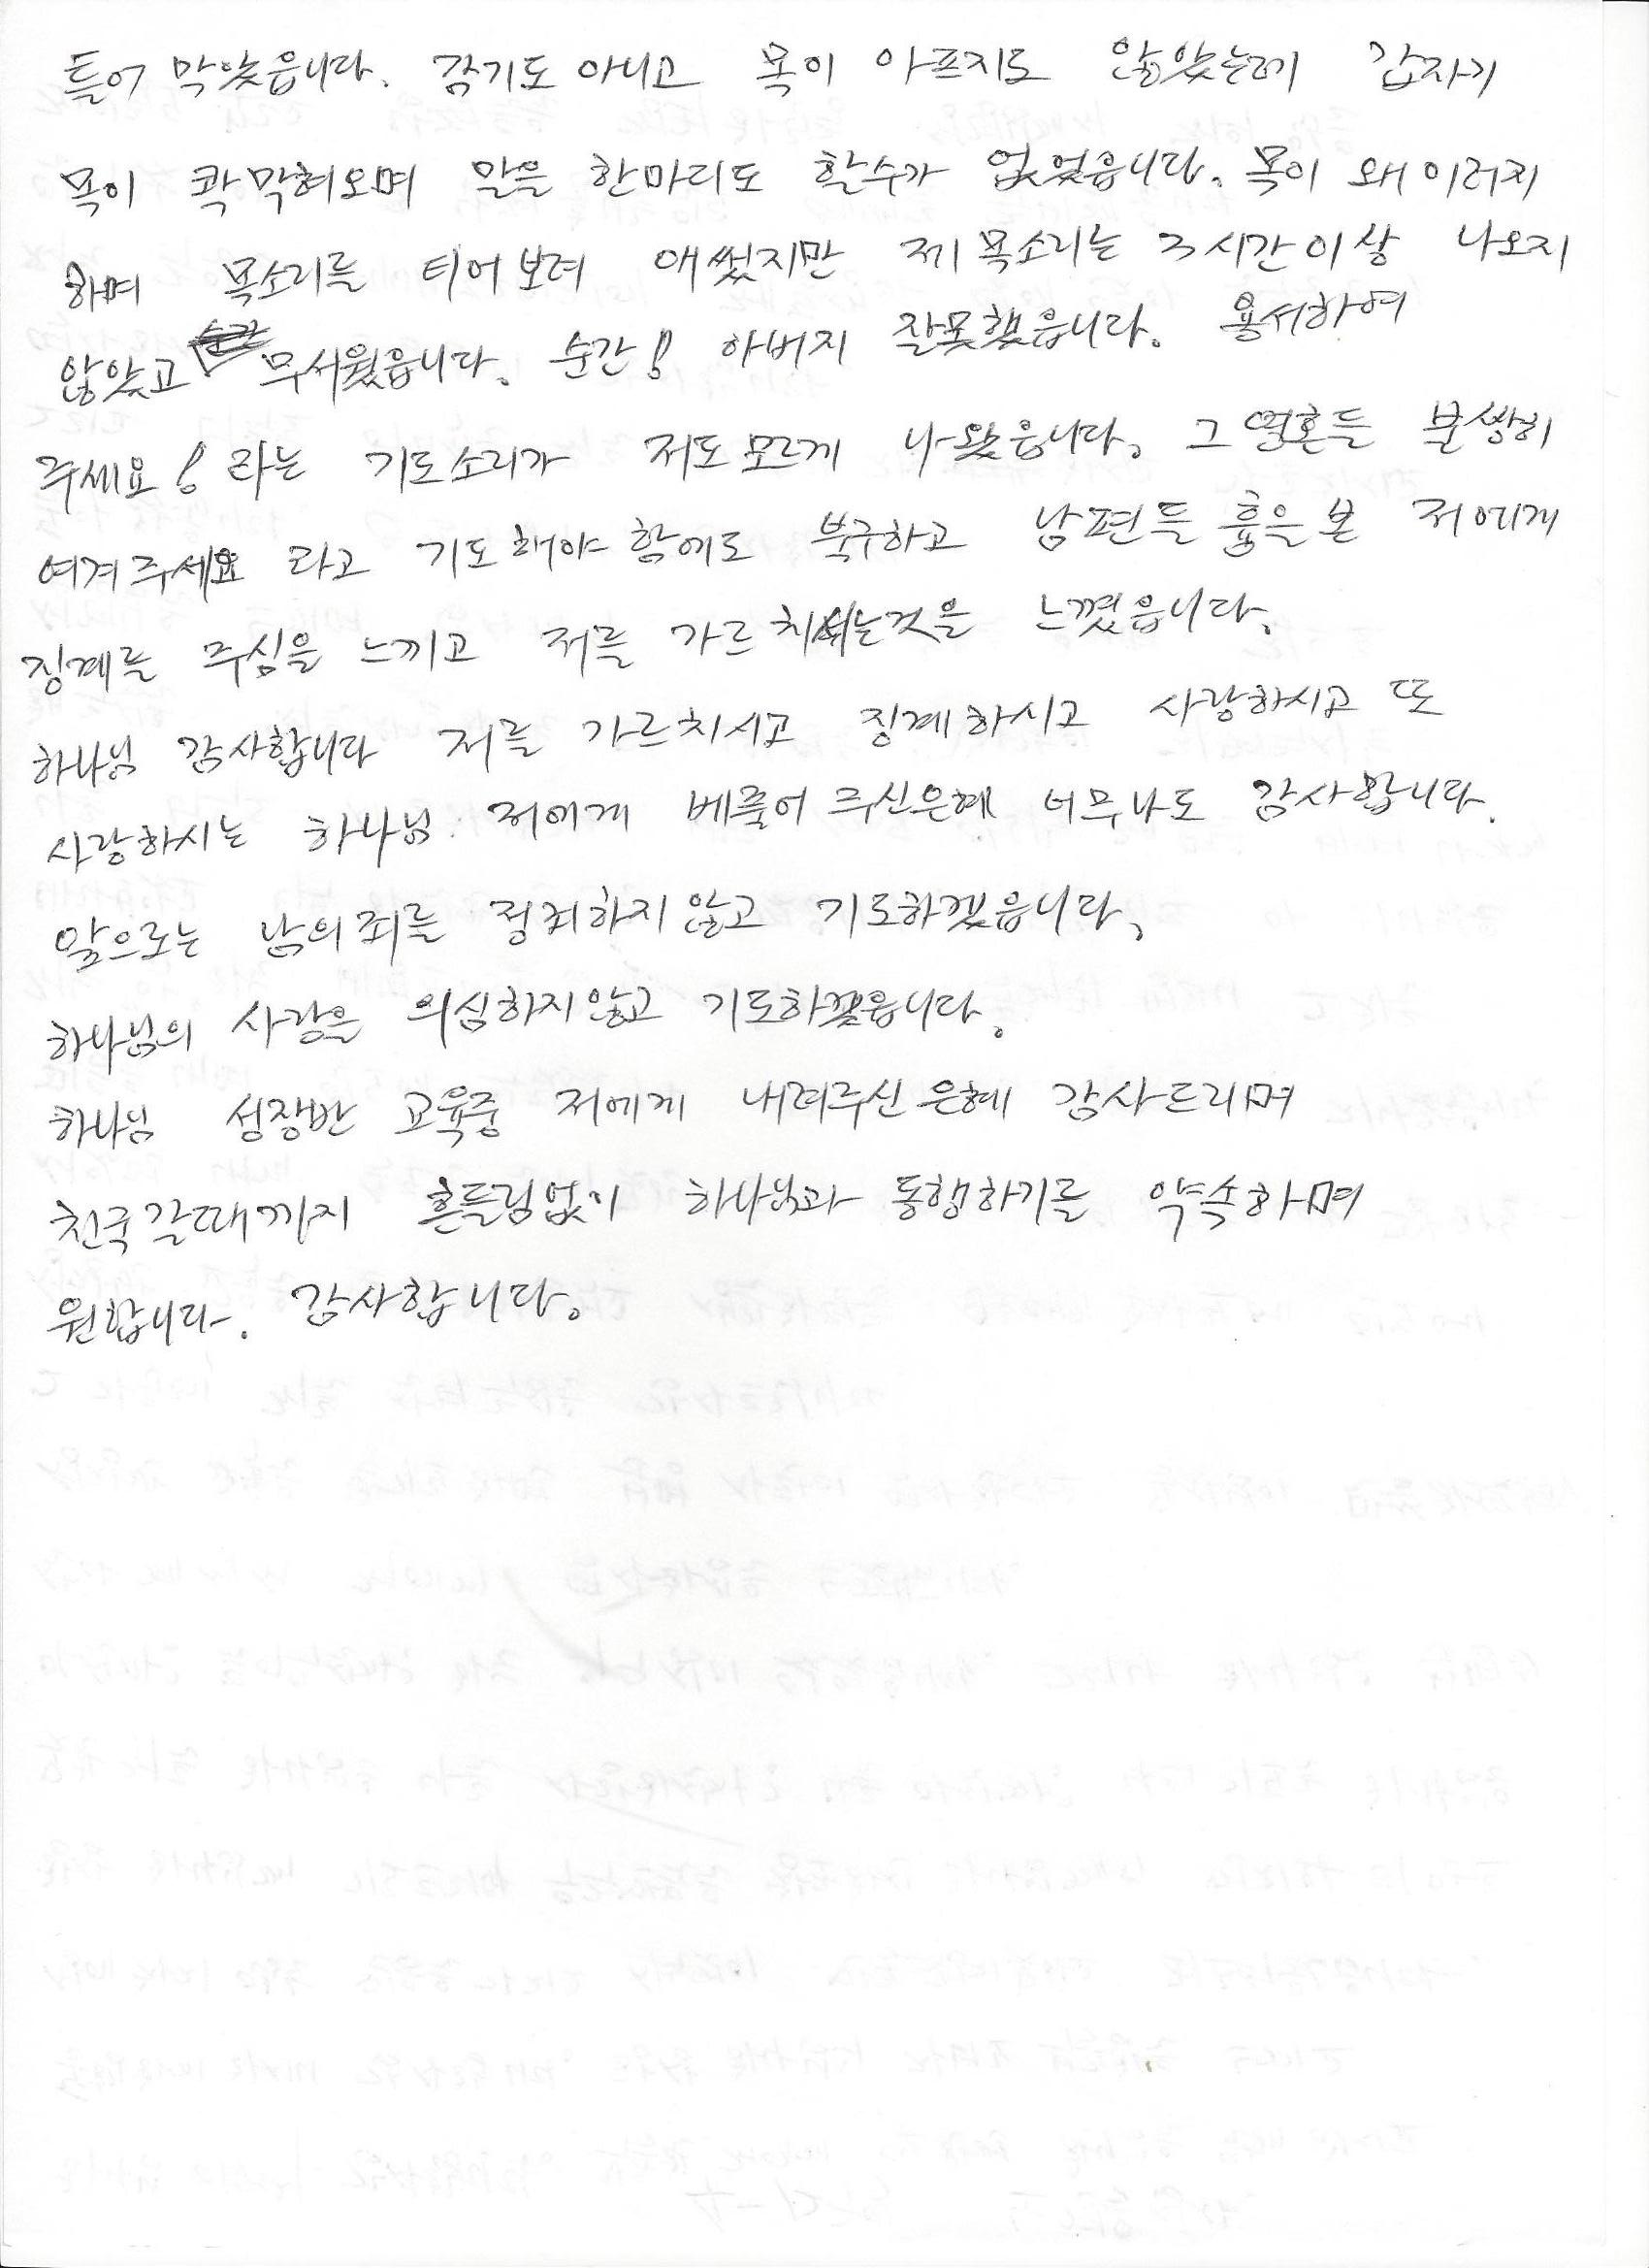 들어 막았읍니다. 감기도 아니고 목이 아프지도 않았는데 갑자기
목이 콱 막혀오며 말을 한마디도 할수가 없었읍니다. 목이 왜 이러지
하며 목소리를 티어보려 애썼지만 제 목소리는 3시간이상 나오지
않았고 무서웠읍니다. 순간! 아버지 잘못했읍니다. 용서하여
주세요! 라는 기도소리가 저도 모르게 나왔읍니다. 그 영혼들 불쌍히
여겨주세요 라고 기도해야 함에도 북구하고 남편들 흉을 본 저에게
징계를 주심을 느끼고 저를 가르치시는것을 느꼈읍니다.
하나님 감사합니다 저를 가르치시고 징계하시고 사랑하시고 또
사랑하시는 하나님. 저에게 베풀어 주신은혜 너무나도 감사합니다.
앞으로는 남의죄를 정죄하지않고 기도하겠읍니다.
하나님의 사랑을 의심하지않고 기도하겠읍니다.
하나님 성장반 교육중 저에게 내려주신 은혜 감사드리며
천국갈때까지 흔들림없이 하나님과 동행하기를 약속하며
원합니다. 감사합니다.